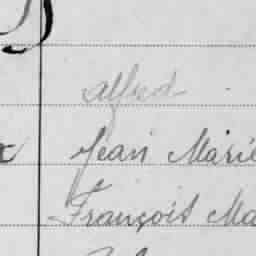 alfred
Jean Marie
François Ma